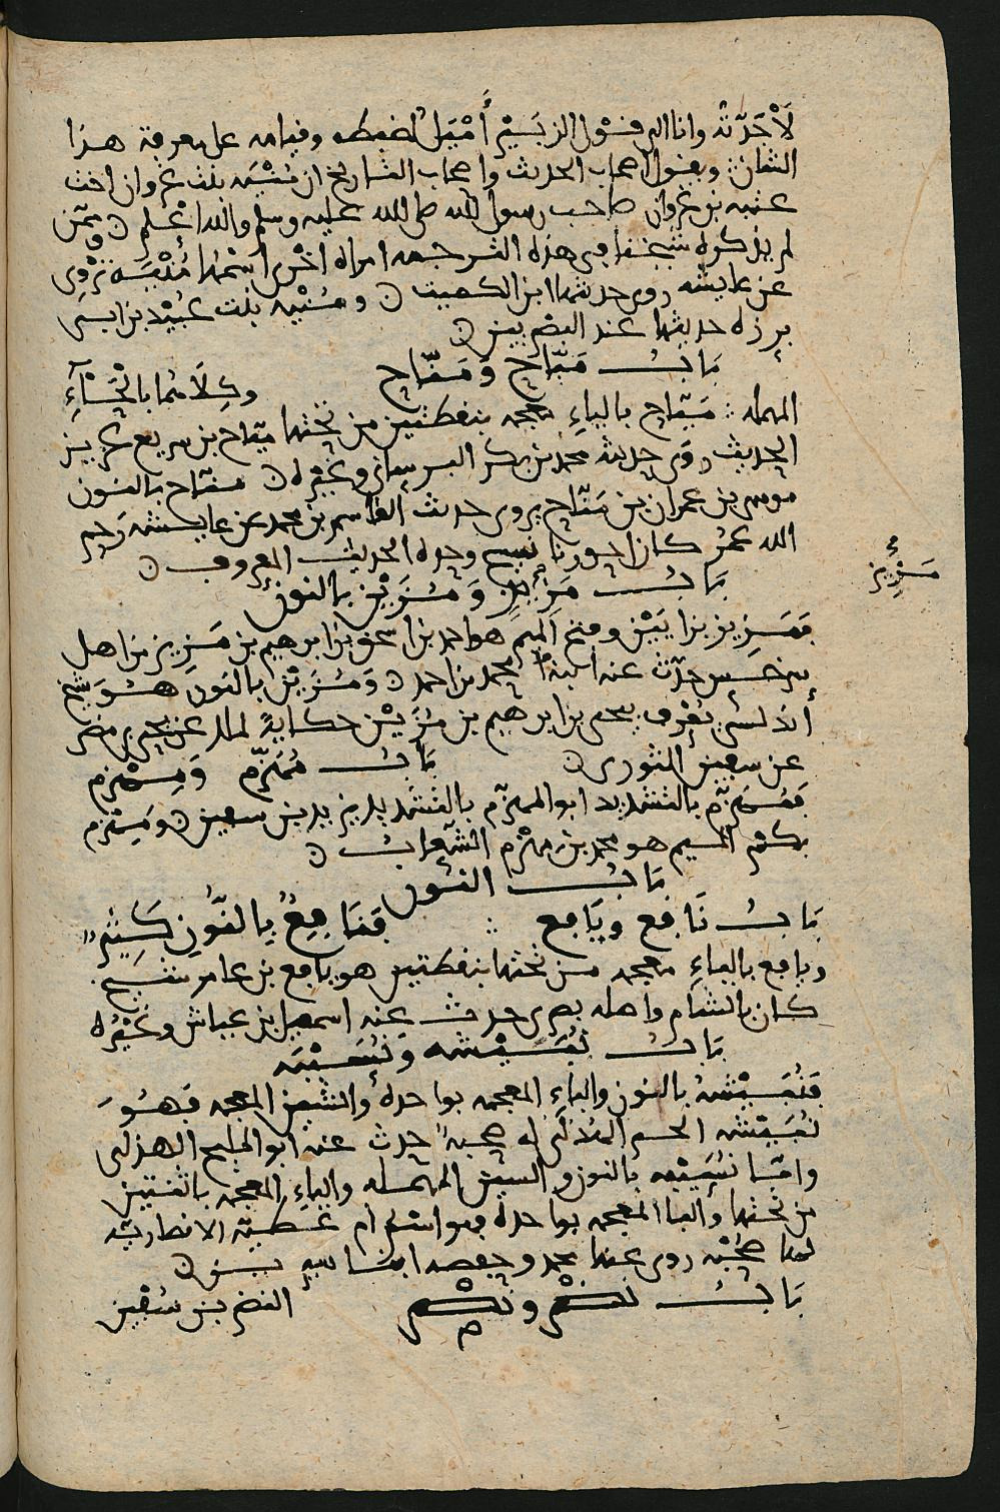 لَاْجَدّته وانا الى قول الزبَيْر أَمْيَل لضبطه وقيامه على معرفة هذا
الشان ويقول اصحاب الحديث واصحاب التاريخ ان مُنْيَه بنت غزوان اخت
عتبه بن غزوان صاحب رسول الله صلى الله عليه وسلم والله اعْلم ن وممّن
لم يذكره شيخنا في هذه الترجمه امراه اخرى اسْمها مُنْيَه تَرْوِي
عن عايشه روى حديثها ابن الكميت ن ومُنْيه بنت عُبَيْد بن ابي
برزه حديثها عند البصريين ن
بَابُ مَيّاح وَمَنّاح وكِلَاهُما بالْحَآءِ
المهمله مَيّاح بالياءِ معجمه بنقطتين من تحتها ميّاح بن سريع عزيز
الحديث روَى حديثه محمد بن بكر البرساني وغيره ن منّاح بالنون
موسى بن عمران بن مَنّاح يروى حديث القاسم بن محمد عن عايشه رَحِم
الله عُمَر كان احوزيا نسيج وحده الحديث المعروف ن
بَابُ مَزِيز وَمُزَيْن بالنون
مَزِيز
فمَزِيز بزايَيْن وفتح الميم هو احمد بن اسحق بن ابرهيم بن مَزِيز من اهل
سرخس حدّث عنه ابنه محمد بن احمد ن وَمُزَيْن بالنون هُوَ شيخ
أندلسي يُعْرف بيحيى بن ابرهيم بن مُزَيْن حكايةً لملد عن يحيى بن مضر
عن سفين الثوري ن بَابُ مُهَزّم وَمِهْزم
فمُهَزّم بالتشديد ابو المهزّم بالتشديد يزيد بن سفين ن ومِهْزم
بكسر الميم هو محمد بن مِهْزم الشعاب ن
بَابُ النون
بَابُ نَافع ويَافع فنَافِعُ بِالنُّونِ كَثِيْر
ويافع بالياءِ معجمه من تحتها بنقطتين هو يافع بن عامر شيخ
كان بالشام واصله بصرى حدث عنه اسمعيل بن عياش وغَيْرُه
بَابُ نُبَيْشه ونُسَيْبَه
فنُبَيْشه بالنون والباءِ المعجمه بواحده والشين المعجمه فهُوَ
نُبَيْشه الخير الهُذَلي له صحبه حدث عنه ابو المليح الهذلى
وامّا نُسَيْبه بالنون والسين المهمله والياءِ المعجمه باثنتين
من تحتها والبا المعجمه بواحده فهو اسْم ام عَطيّه الانصاريّه
لها صُحْبَه روى عنها محمد وحفصه ابنا سيرين ن
بَابُ نضْر ونصْر النضر بن سُفْين